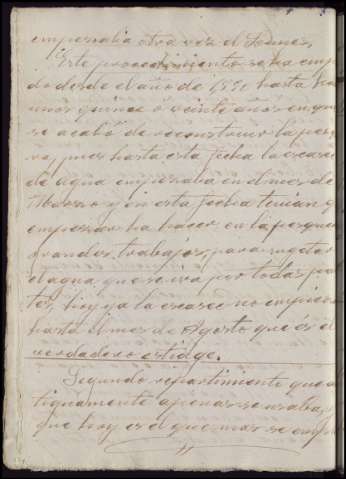 empesalia otra vez el Lunes.
Este procedimiento se ha emp
do desde el año de 1550 hasta ha
unos quince ó veinte años en que
se acabó de reconstruir la pes
ra, pues hasta esta fecha la escases
de agua empesaba en el mes de
Marzo y en esta fecha tenian q
empesar ha hacer en la pesquer
grandes trabajos, para sugetar
el agua que se iva por todas pa
tes, hoy ya la escases no empiesa
hasta el mes de Agosto que es el
verdadero estiage.
Segundo repartimiento que an
tiguamente apenas se usaba, y
que hoy es el que mas se emp